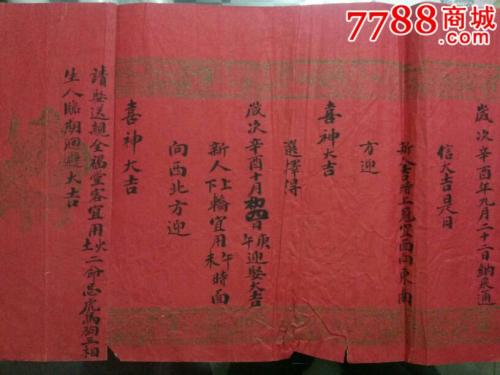 7788商城
歲次辛酉年九月二十二日納衣通
信大吉是日
方迎
喜神大吉
選擇得
歲次辛酉十月初四日庚午迎娶大吉
新人上下輪宜用午未時面
向西北方迎
喜神大吉
請娶送親全福堂客宜用火土二命忌虎馬狗三相
生人臨期迴避大吉